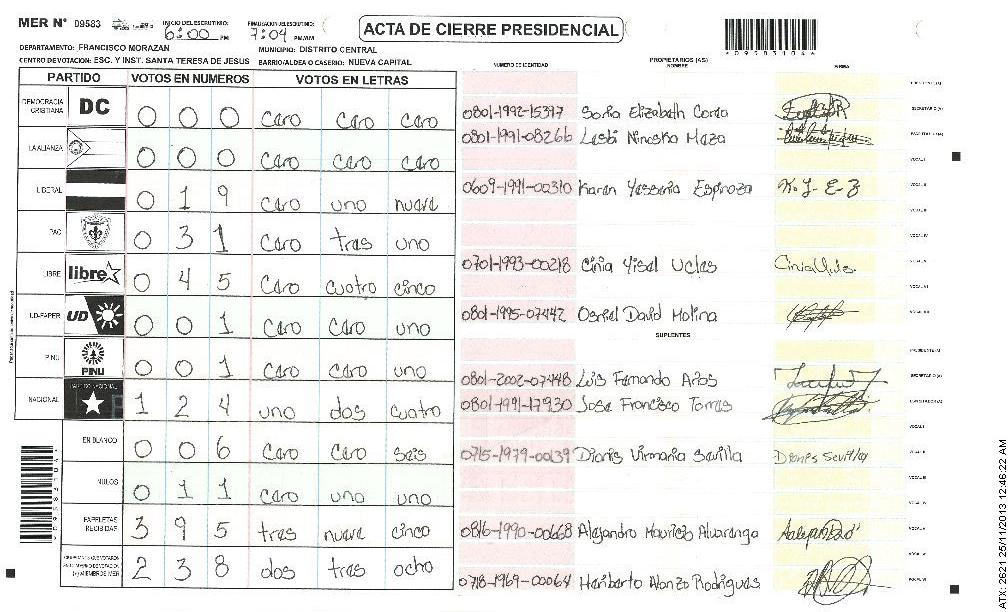 MER N° 09583
INICIO DEL ESCRUTINIO: 6:00 PM
FINALIZACION DEL ESCRUTINIO: 7:04 PM/AM
ACTA DE CIERRE PRESIDENCIAL
DEPARTAMENTO: FRANCISCO MORAZAN MUNICIPIO: DISTRITO CENTRAL
CENTRO DE VOTACION: ESC. Y INST. SANTA TERESA DE JESUS BARRIO/ALDEA O CASERIO: NUEVA CAPITAL
PARTIDO VOTOS EN NUMEROS VOTOS EN LETRAS
DEMOCRACIA CRISTIANA DC 0 0 0 Caro Caro Caro
LA ALIANZA 0 0 0 Caro Caro Caro
LIBERAL 0 1 9 Caro uno nueve
PAC 0 3 1 Caro tras uno
LIBRE libre 0 4 5 Caro cuatro cinco
UD-FAPER UD 0 0 1 Caro Caro uno
PINU PINU 0 0 1 Caro Caro uno
NACIONAL 1 2 4 uno dos cuatro
EN BLANCO 0 0 6 Caro Caro Seis
NULOS 0 1 1 Caro uno uno
PAPELETAS RECIBIDAS 3 9 5 tras nueve cinco
2 3 8 dos tras ocho
NUMERO DE IDENTIDAD PROPIETARIOS (AS) NOMBRE FIRMA
0801-1992-15397 Sonia Elizabeth Cerda SECRETARIO(A)
0801-1991-08266 Lesbi Ninoska Maza
VOCAL I
0609-1991-00310 Karen Yessenia Espinoza K. Y- E- Z VOCAL II
VOCAL III
VOCAL IV
0701-1993-00218 Cinia Yisel Ucles VOCAL V
VOCAL VI
0801-1995-07442 Osniel David Molina VOCAL VII
SUPLENTES
PRESIDENTE(A)
0801-2002-07448 Luis Fernando Arios SECRETARIO(A)
0801-1991-17930 Jose Francisco Torres ESCRUTADOR(A)
VOCAL I
0715-1979-00139 Dionis Virmania Sevilla Dionis Sevilla VOCAL II
VOCAL III
VOCAL IV
0816-1990-00668 Alejandro Mauricio Alvarenga VOCAL V
VOCAL VI
0718-1969-00064 Heriberto Alonzo Rodrigues VOCAL VII
ATX-2521 25/11/2013 12:46:22 AM